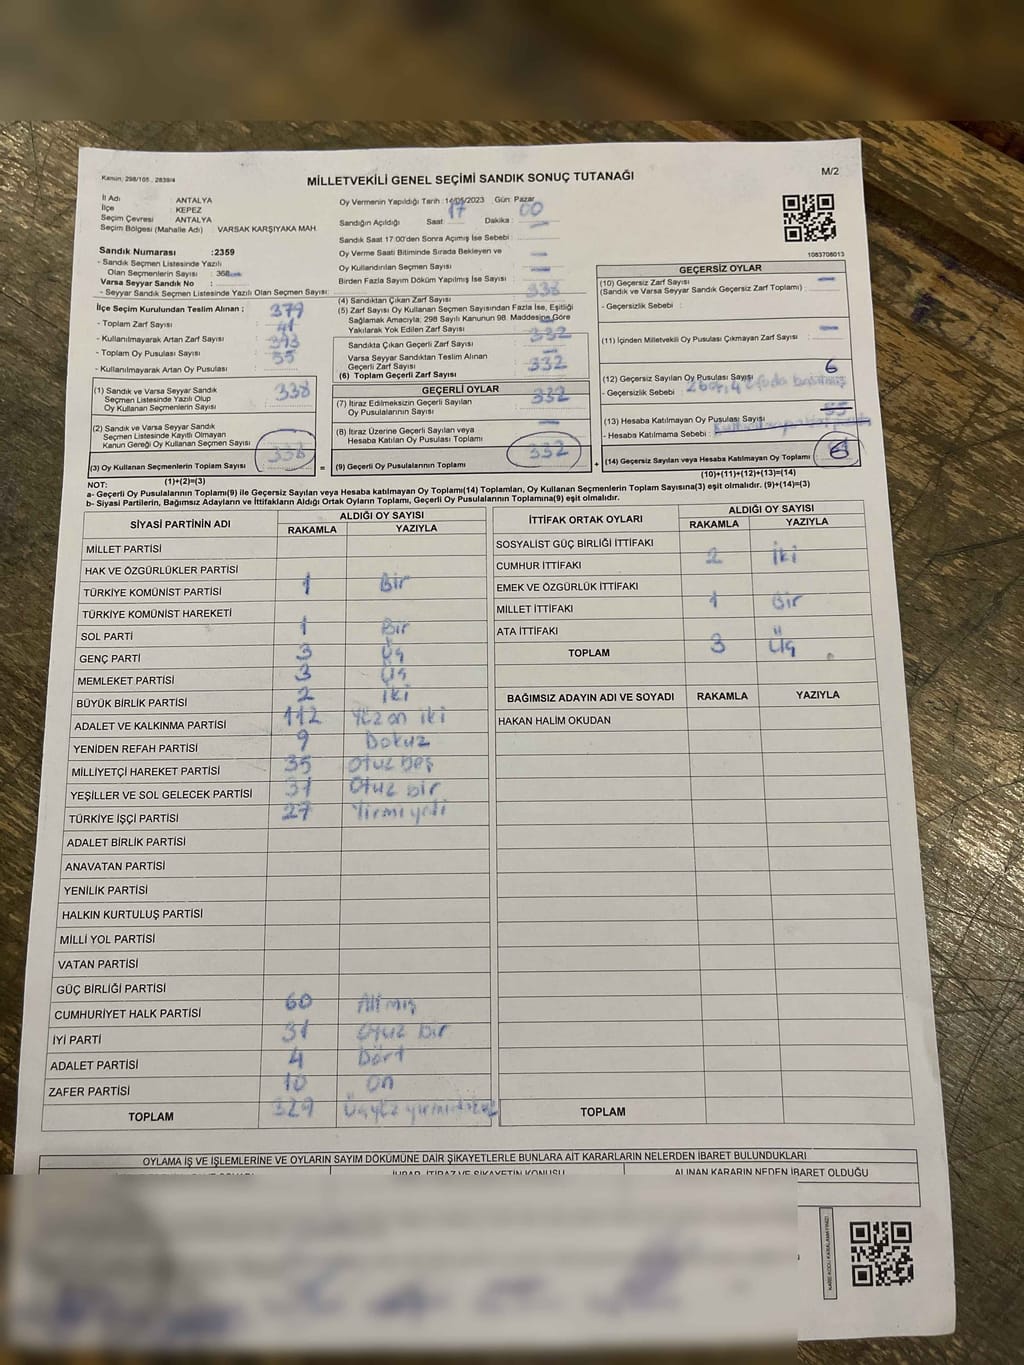 Kanun: 298/105, 2839/4
MİLLETVEKİLİ GENEL SEÇİMİ SANDIK SONUÇ TUTANAĞI
M/2
İl Adı : ANTALYA
İlçe : KEPEZ
Seçim Çevresi : ANTALYA
Seçim Bölgesi (Mahalle Adı) : VARSAK KARŞIYAKA MAH.
Sandık Numarası :2359
- Sandık Seçmen Listesinde Yazılı
Olan Seçmenlerin Sayısı : 368
Varsa Seyyar Sandık No :
- Seyyar Sandık Seçmen Listesinde Yazılı Olan Seçmen Sayısı:
İlçe Seçim Kurulundan Teslim Alınan ;
- Toplam Zarf Sayısı : 379
- Kullanılmayarak Artan Zarf Sayısı : 41
- Toplam Oy Pusulası Sayısı : 393
- Kullanılmayarak Artan Oy Pusulası : 55
(1) Sandık ve Varsa Seyyar Sandık
Seçmen Listesinde Yazılı Olup
Oy Kullanan Seçmenlerin Sayısı : 338
(2) Sandık ve Varsa Seyyar Sandık
Seçmen Listesinde Kayıtlı Olmayan
Kanun Gereği Oy Kullanan Seçmen Sayısı
(3) Oy Kullanan Seçmenlerin Toplam Sayısı : 338
(1)+(2)=(3)
Oy Vermenin Yapıldığı Tarih : 14/05/2023 Gün: Pazar
Sandığın Açıldığı Saat: 17 Dakika : 00
Sandık Saat 17:00'den Sonra Açımış İse Sebebi :
Oy Verme Saati Bitiminde Sırada Bekleyen ve : —
Oy Kullandırılan Seçmen Sayısı : —
Birden Fazla Sayım Döküm Yapılmış İse Sayısı : —
(4) Sandıktan Çıkan Zarf Sayısı : 338
(5) Zarf Sayısı Oy Kullanan Seçmen Sayısından Fazla İse, Eşitliği
Sağlamak Amacıyla; 298 Sayılı Kanunun 98. Maddesine Göre
Yakılarak Yok Edilen Zarf Sayısı : —
Sandıkta Çıkan Geçerli Zarf Sayısı : 332
Varsa Seyyar Sandıktan Teslim Alınan
Geçerli Zarf Sayısı : —
(6) Toplam Geçerli Zarf Sayısı : 332
GEÇERLİ OYLAR
(7) İtiraz Edilmeksizin Geçerli Sayılan
Oy Pusulalarının Sayısı : 332
(8) İtiraz Üzerine Geçerli Sayılan veya
Hesaba Katılan Oy Pusulası Toplamı : —
= (9) Geçerli Oy Pusulalarının Toplamı : 332
1083708013
GEÇERSİZ OYLAR
(10) Geçersiz Zarf Sayısı
(Sandık ve Varsa Seyyar Sandık Geçersiz Zarf Toplamı) : —
- Geçersizlik Sebebi :
(11) İçinden Milletvekili Oy Pusulası Çıkmayan Zarf Sayısı : —
(12) Geçersiz Sayılan Oy Pusulası Sayısı : 6
- Geçersizlik Sebebi :
(13) Hesaba Katılmayan Oy Pusulası Sayısı : 55
- Hesaba Katılmama Sebebi :
+ (14) Geçersiz Sayılan veya Hesaba Katılmayan Oy Toplamı : 6
(10)+(11)+(12)+(13)=(14)
NOT:
a- Geçerli Oy Pusulalarının Toplamı(9) ile Geçersiz Sayılan veya Hesaba katılmayan Oy Toplamı(14) Toplamları, Oy Kullanan Seçmenlerin Toplam Sayısına(3) eşit olmalıdır. (9)+(14)=(3)
b- Siyasi Partilerin, Bağımsız Adayların ve İttifakların Aldığı Ortak Oyların Toplamı, Geçerli Oy Pusulalarının Toplamına(9) eşit olmalıdır.
SİYASİ PARTİNİN ADI ALDIĞI OY SAYISI
RAKAMLA YAZIYLA
MİLLET PARTİSİ
HAK VE ÖZGÜRLÜKLER PARTİSİ
TÜRKİYE KOMÜNİST PARTİSİ 1 Bir
TÜRKİYE KOMÜNİST HAREKETİ
SOL PARTİ 1 Bir
GENÇ PARTİ 3 Üç
MEMLEKET PARTİSİ 3 Üç
BÜYÜK BİRLİK PARTİSİ 2 iki
ADALET VE KALKINMA PARTİSİ 112 Yüz on iki
YENİDEN REFAH PARTİSİ 9 Dokuz
MİLLİYETÇİ HAREKET PARTİSİ 35 Otuz beş
YEŞİLLER VE SOL GELECEK PARTİSİ 31 Otuz bir
TÜRKİYE İŞÇİ PARTİSİ 27 Yirmi yedi
ADALET BİRLİK PARTİSİ
ANAVATAN PARTİSİ
YENİLİK PARTİSİ
HALKIN KURTULUŞ PARTİSİ
MİLLİ YOL PARTİSİ
VATAN PARTİSİ
GÜÇ BİRLİĞİ PARTİSİ
CUMHURİYET HALK PARTİSİ 60 Altmış
İYİ PARTİ 31 Otuz bir
ADALET PARTİSİ 4 Dört
ZAFER PARTİSİ 10 On
TOPLAM 329 Üçyüz yirmidokuz
İTTİFAK ORTAK OYLARI ALDIĞI OY SAYISI
RAKAMLA YAZIYLA
SOSYALİST GÜÇ BİRLİĞİ İTTİFAKI
CUMHUR İTTİFAKI 2 İki
EMEK VE ÖZGÜRLÜK İTTİFAKI
MİLLET İTTİFAKI 1 Bir
ATA İTTİFAKI
TOPLAM 3 Üç
BAĞIMSIZ ADAYIN ADI VE SOYADI RAKAMLA YAZIYLA
HAKAN HALİM OKUDAN
TOPLAM
OYLAMA İŞ VE İŞLEMLERİNE VE OYLARIN SAYIM DÖKÜMÜNE DAİR ŞİKAYETLERLE BUNLARA AİT KARARLARIN NELERDEN İBARET BULUNDUKLARI
İHBAR, İTİRAZ VE ŞİKAYETİN KONUSU ALINAN KARARIN NEDEN İBARET OLDUĞU